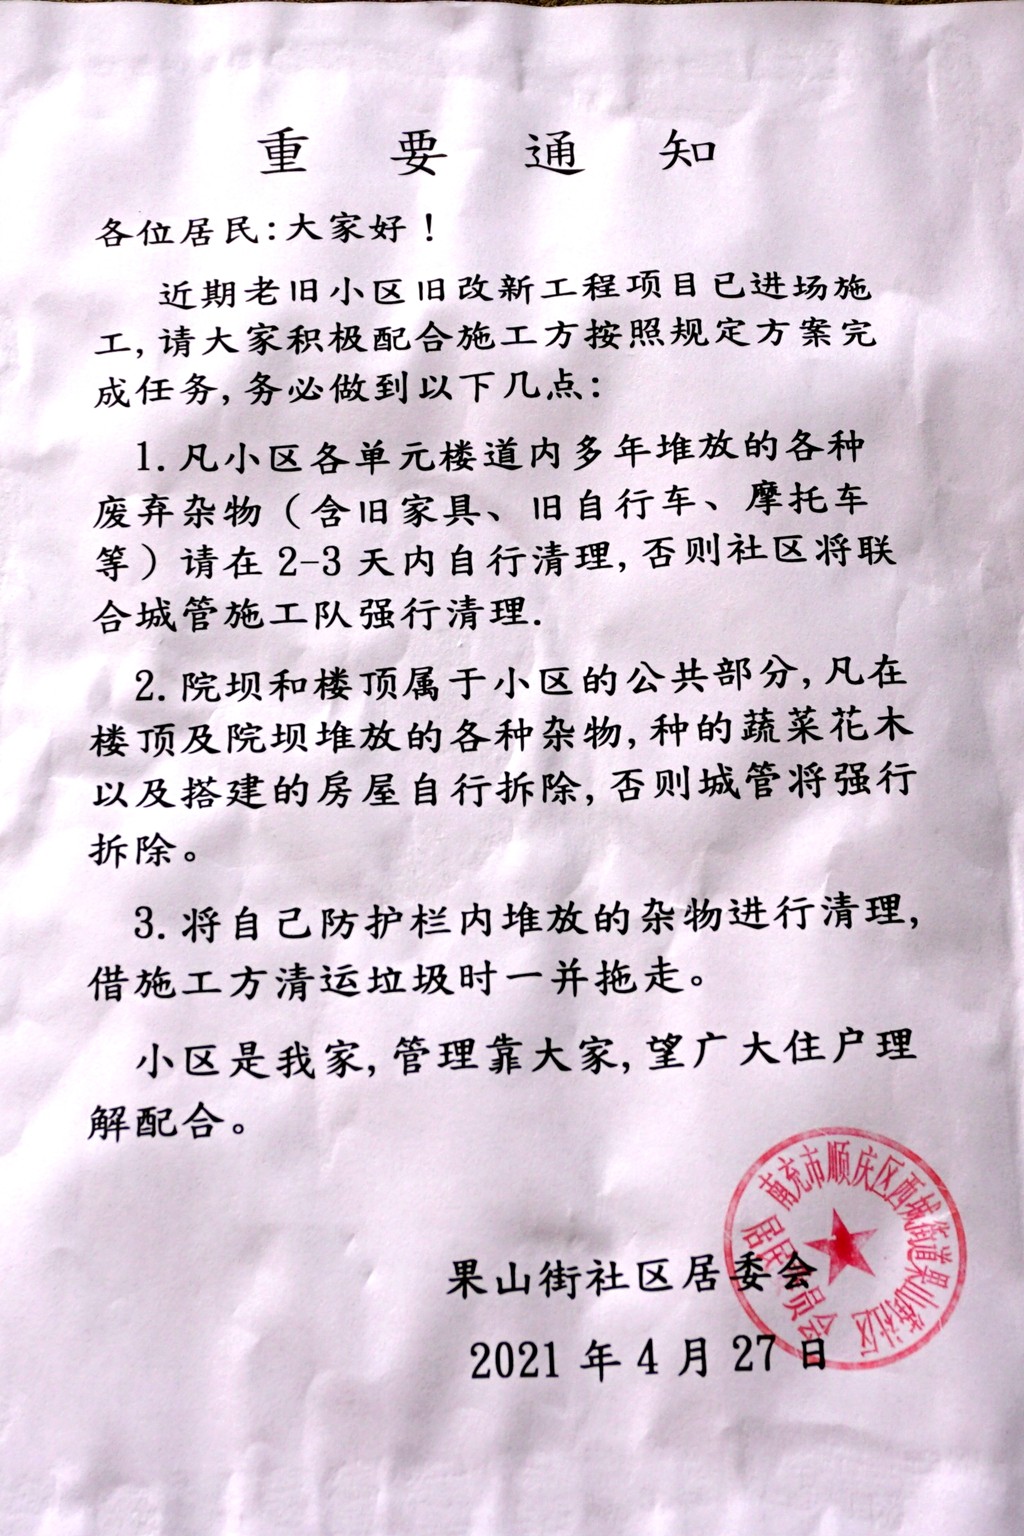 重要通知
各位居民:大家好！
近期老旧小区旧改新工程项目已进场施
工,请大家积极配合施工方按照规定方案完
成任务,务必做到以下几点:
1.凡小区各单元楼道内多年堆放的各种
废弃杂物（含旧家具、旧自行车、摩托车
等）请在2-3天内自行清理,否则社区将联
合城管施工队强行清理.
2.院坝和楼顶属于小区的公共部分,凡在
楼顶及院坝堆放的各种杂物,种的蔬菜花木
以及搭建的房屋自行拆除,否则城管将强行
拆除。
3.将自己防护栏内堆放的杂物进行清理,
借施工方清运垃圾时一并拖走。
小区是我家,管理靠大家,望广大住户理
解配合。
果山街社区居委会
2021年4月27日
南充市顺庆区西城街道果山街社区
居民委员会